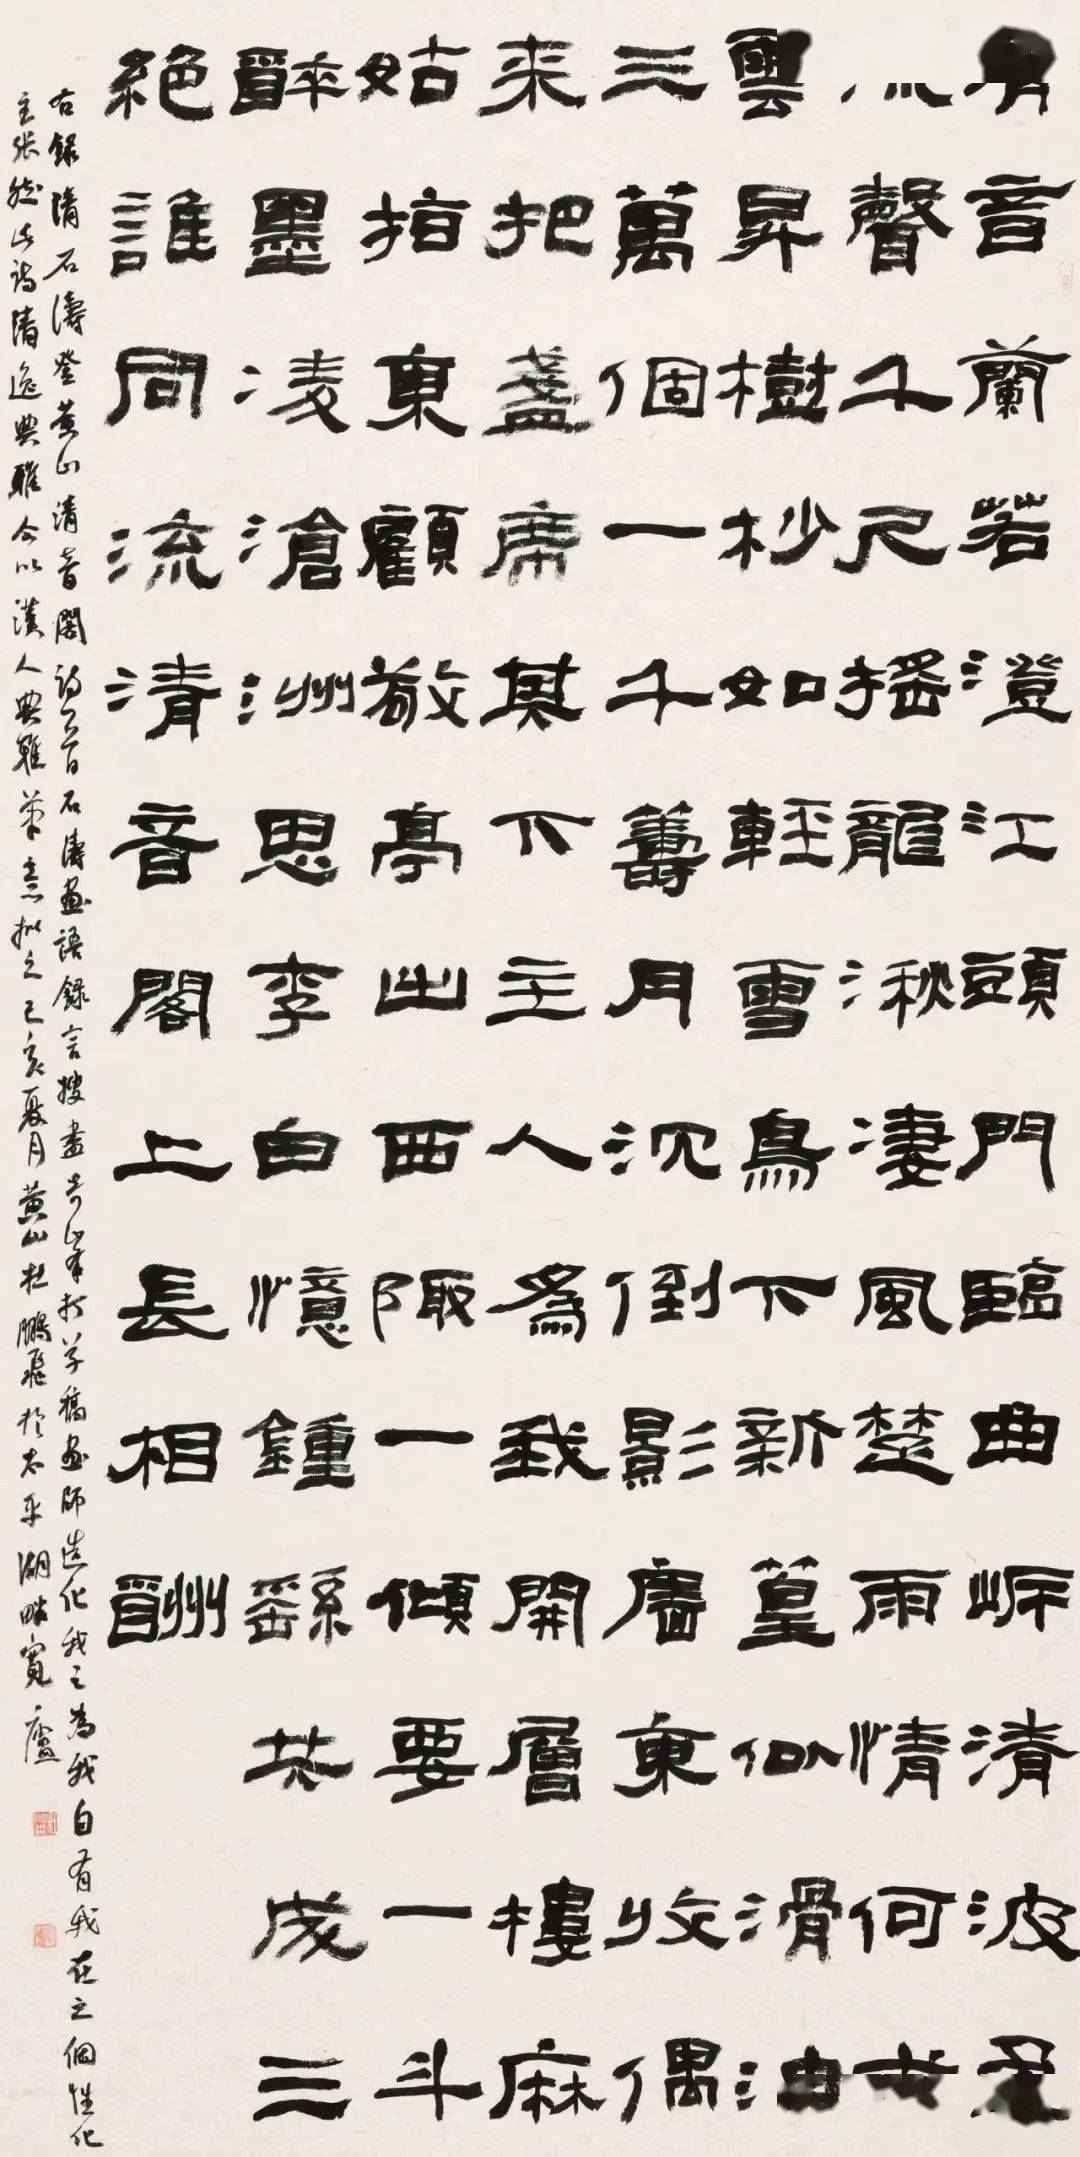 音蘭若澄江頭門臨曲岸清波
聲千尺搖龍湫淒風楚雨情何
雲昇樹杪如輕雪鳥下新篁似滑油
三萬個一千籌月沉倒影廧東收偶
來把盞席其下主人為我開層樓麻
姑指東顧敬亭出西陬一傾要一斗
醉墨凌滄洲思李白憶鍾繇共成三
絕誰同流清音閣上長相酬
右錄清石濤登黃山清音閣詩一首石濤畫語錄言搜盡奇峯打草稿畫師造化我之為我自有我在之個性化
主張然此詩清逸典雅今以漢人典雅筆意拟之己亥夏月黃山杜鵬飛於太平湖畔寬廬